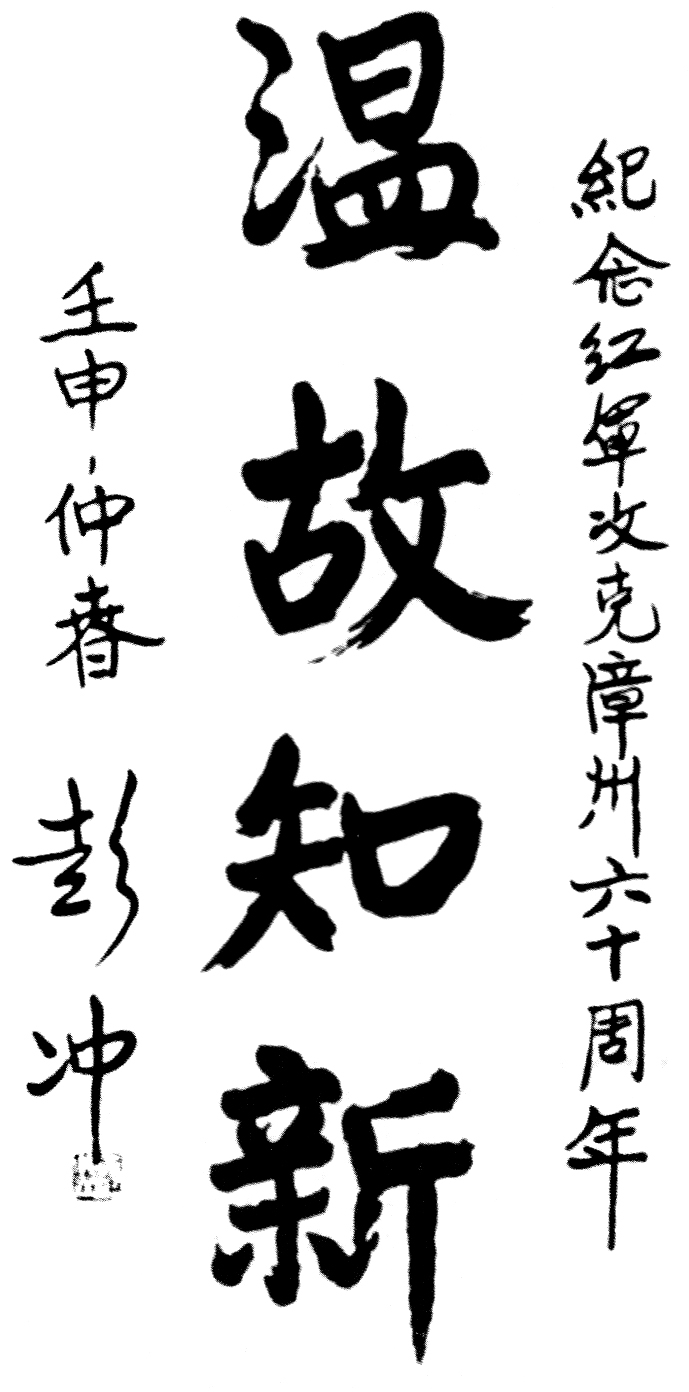 紀念红軍攻克漳州六十周年
温故知新
壬申仲春 彭冲